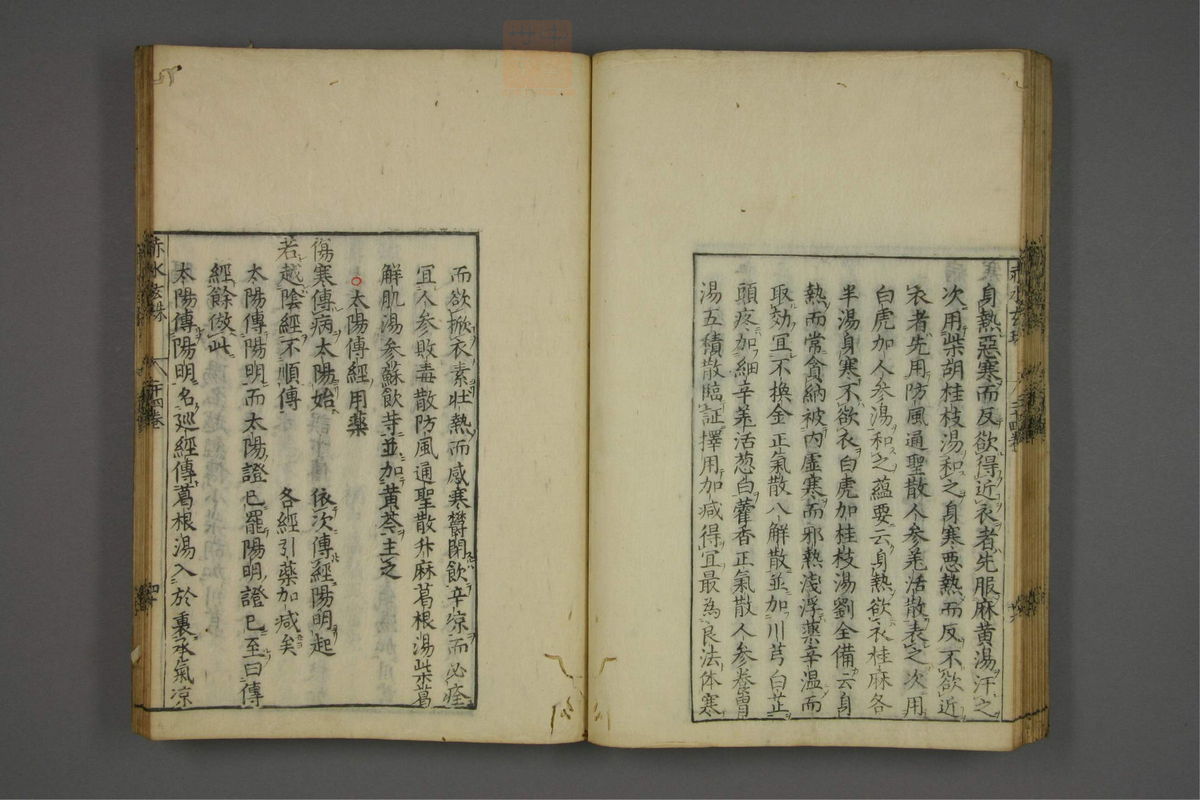 身熱惡寒而反欲得近衣者先服麻黄湯汗之
次用柴胡桂枝湯和之身寒悪熱而反不欲近
衣者先用防風通聖散人参羌活散表之次用
白虎加人参湯和之蘊要云身熱欲衣桂麻各
半湯身寒不欲衣白虎加桂枝湯劉全備云身
熱而常貪納被内虚寒而邪熱浅浮薬辛温而
取効宜不換金正氣散八解散並加川芎白芷
頭疼加細辛羌活葱白藿香正氣散人参養胃
湯五積散臨証擇用加减得宜最為良法体寒
而欲掀衣素壮熱而感寒欝閉飲辛凉而必痊
宜人参敗毒散防風通聖散升麻葛根湯柴葛
解肌湯参蘇飲等並加黄芩主之
○太陽傳經用藥
傷寒傳病太陽始 依次傳經陽明起
若越陰經不順傳 各經引薬加减矣
太陽傳陽明而太陽證已罷陽明證已至曰傳
經餘倣此
太陽傳陽明名廵經傳葛根湯入於裏承氣凉
赤水玄珠 二十四巻